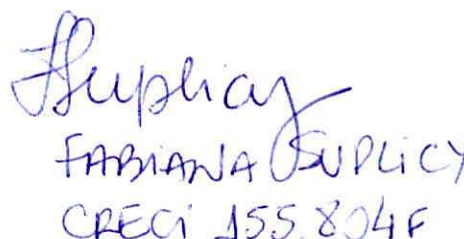 FSuplicy
FABIANA SUPLICY
CRECI 155.804F